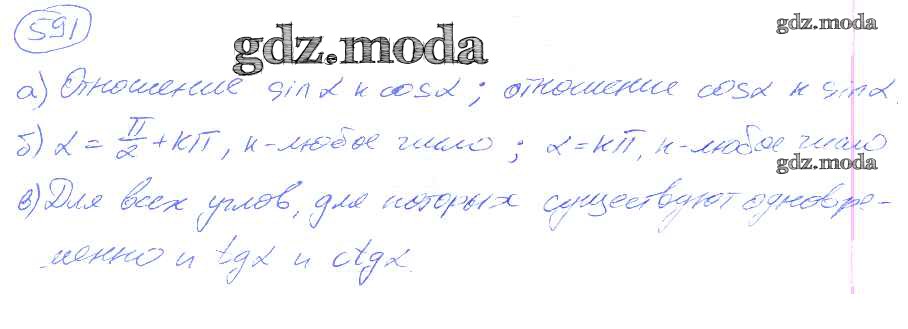 591
gdz.moda
gdz.moda
а) Отношение sinα к cosα; отношение cosα к sinα.
б) α = π/2 + кπ, к-любое число; α = кπ, к-любое число
gdz.moda
в) Для всех углов, для которых существуют одновре-
менно и tgα и ctgα.